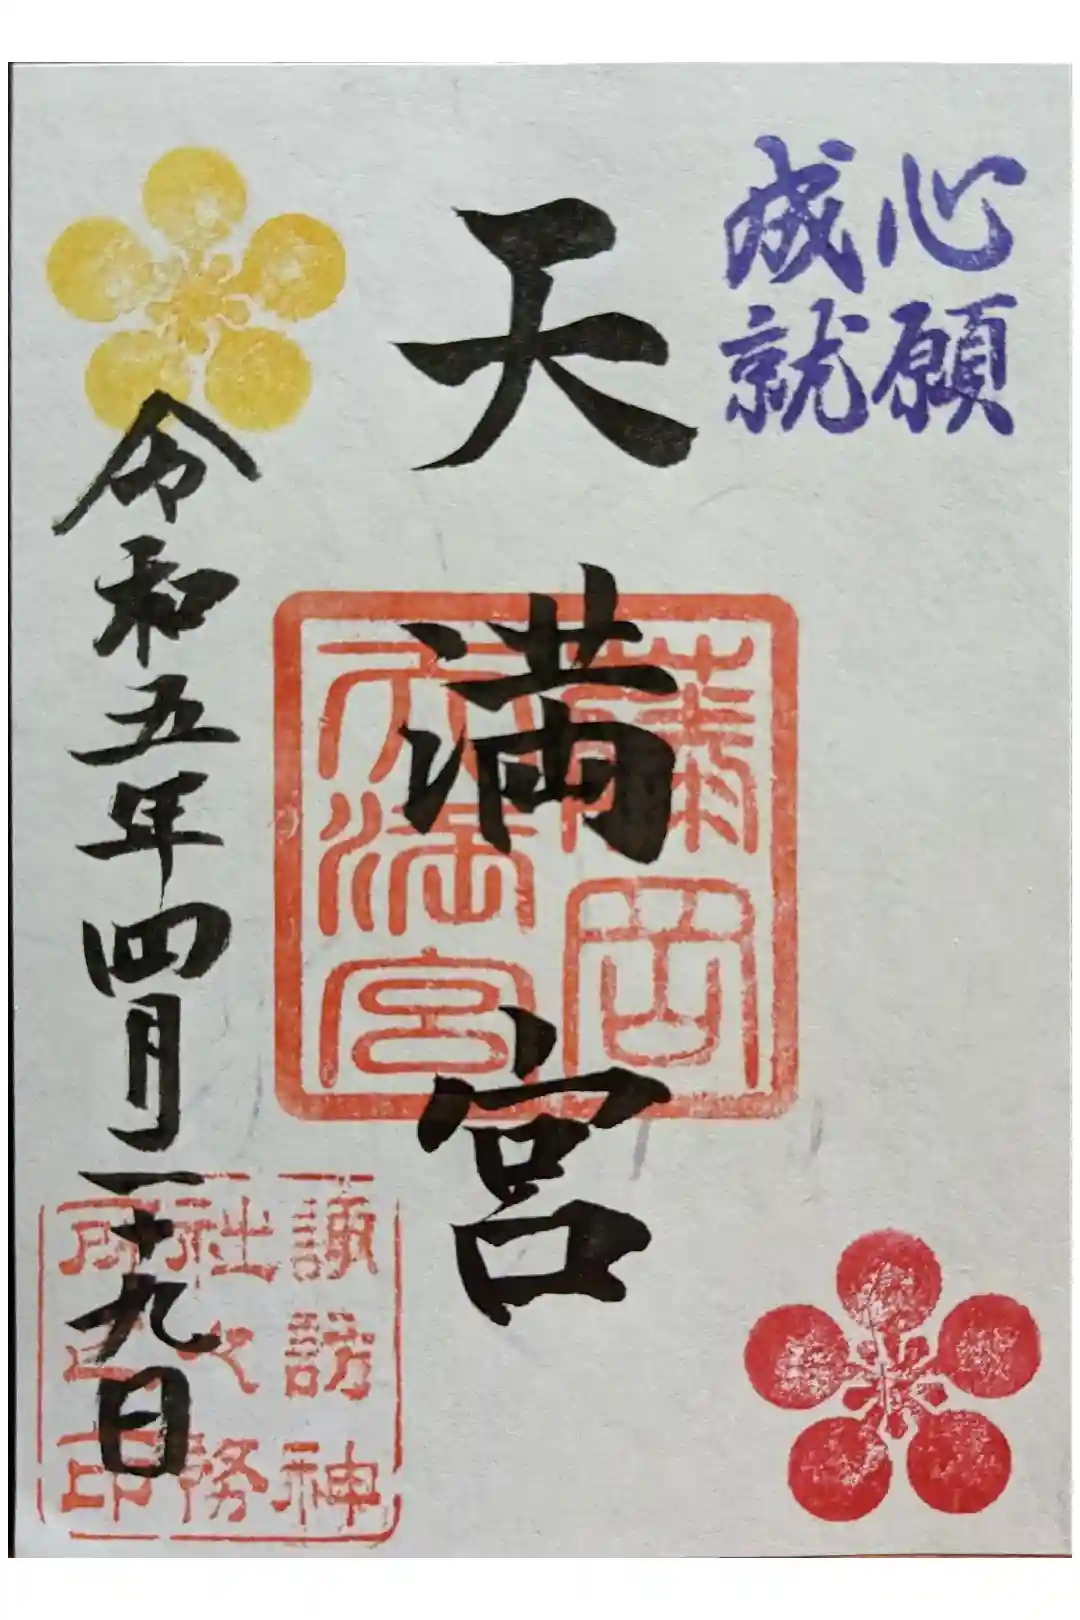 心願
成就
天満宮
藤岡
天満宮
令和五年四月二十九日
諏訪神
社之務
所之印